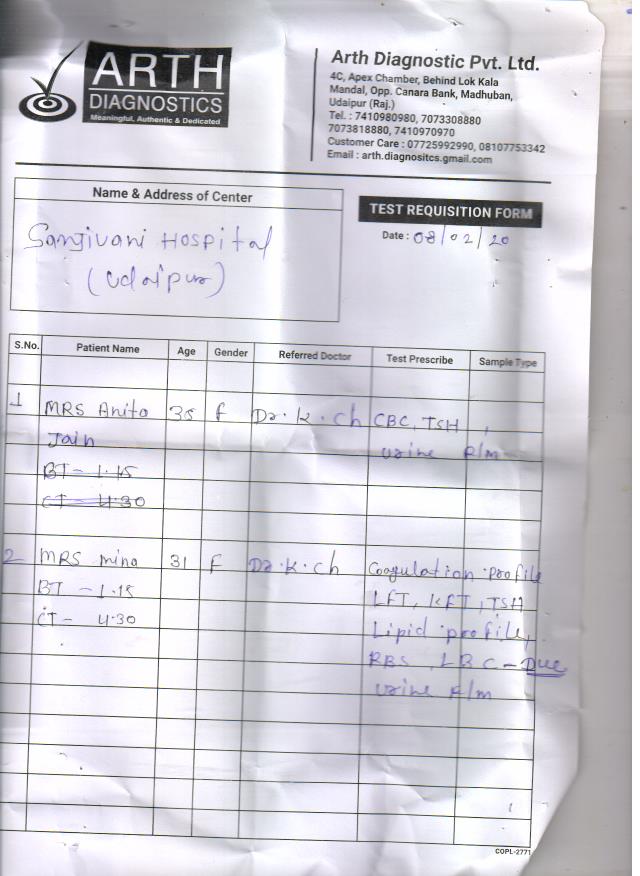 ARTH
DIAGNOSTICS
Meaningful, Authentic & Dedicated
Arth Diagnostic Pvt. Ltd.
4C, Apex Chamber, Behind Lok Kala
Mandal, Opp. Canara Bank, Madhuban,
Udaipur (Raj.)
Tel. : 7410980980, 7073308880
7073818880, 7410970970
Customer Care : 07725992990, 08107753342
Email : arth.diagnositcs.gmail.com
Name & Address of Center
Sanjivani Hospital
(Udaipur)
TEST REQUISITION FORM
Date : 08/02/20
S.No. Patient Name Age Gender Referred Doctor Test Prescribe Sample Type
1 MRS Anita 35 f Dr. K. ch CBC, TSH,
Jain urine R/m
BT - 1.15
CT - 4.30
2 MRS mina 31 F Dr. K. ch Coagulation profile
BT - 1.15 LFT, KFT, TSH
CT - 4.30 Lipid profile,
RBS, LBC - Due
urine R/m
COPL-2771